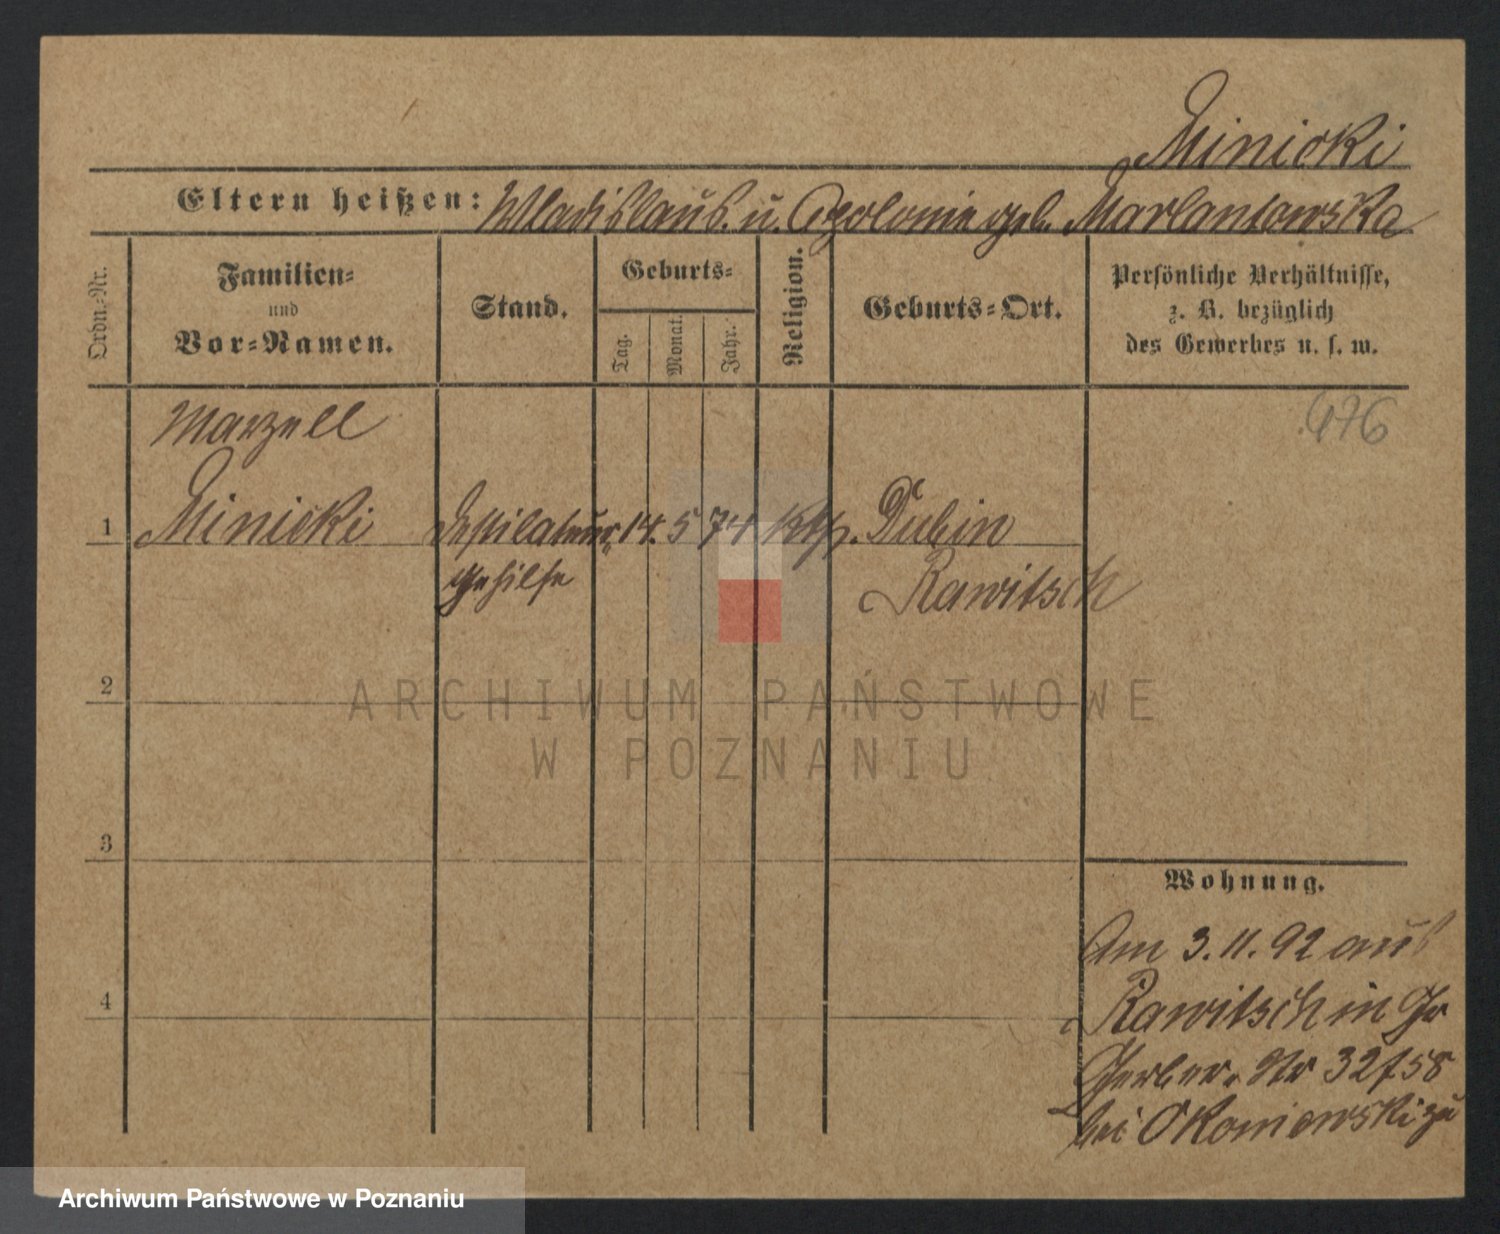 Minicki
Eltern heißen: Wladislaus u. Apolonie geb. Marlantowska
Ordn.-Nr.
Familien-
und
Vor-Namen.
Stand.
Geburts-
Tag.
Monat.
Jahr.
Religion.
Geburts-Ort.
Persönliche Verhältnisse,
z. B. bezüglich
des Gewerbes u. s. w.
Marzell
476
1 Minicki Destilateur 14. 5 74 kth. Dubin
gehilfe Rawitsch
2
3
4
Wohnung.
Am 3.11.92 aus
Rawitsch in Gr
Gerber. Str 32 f 58
bei Okoniewski zu
ARCHIWUM PAŃSTWOWE
W POZNANIU
Archiwum Państwowe w Poznaniu